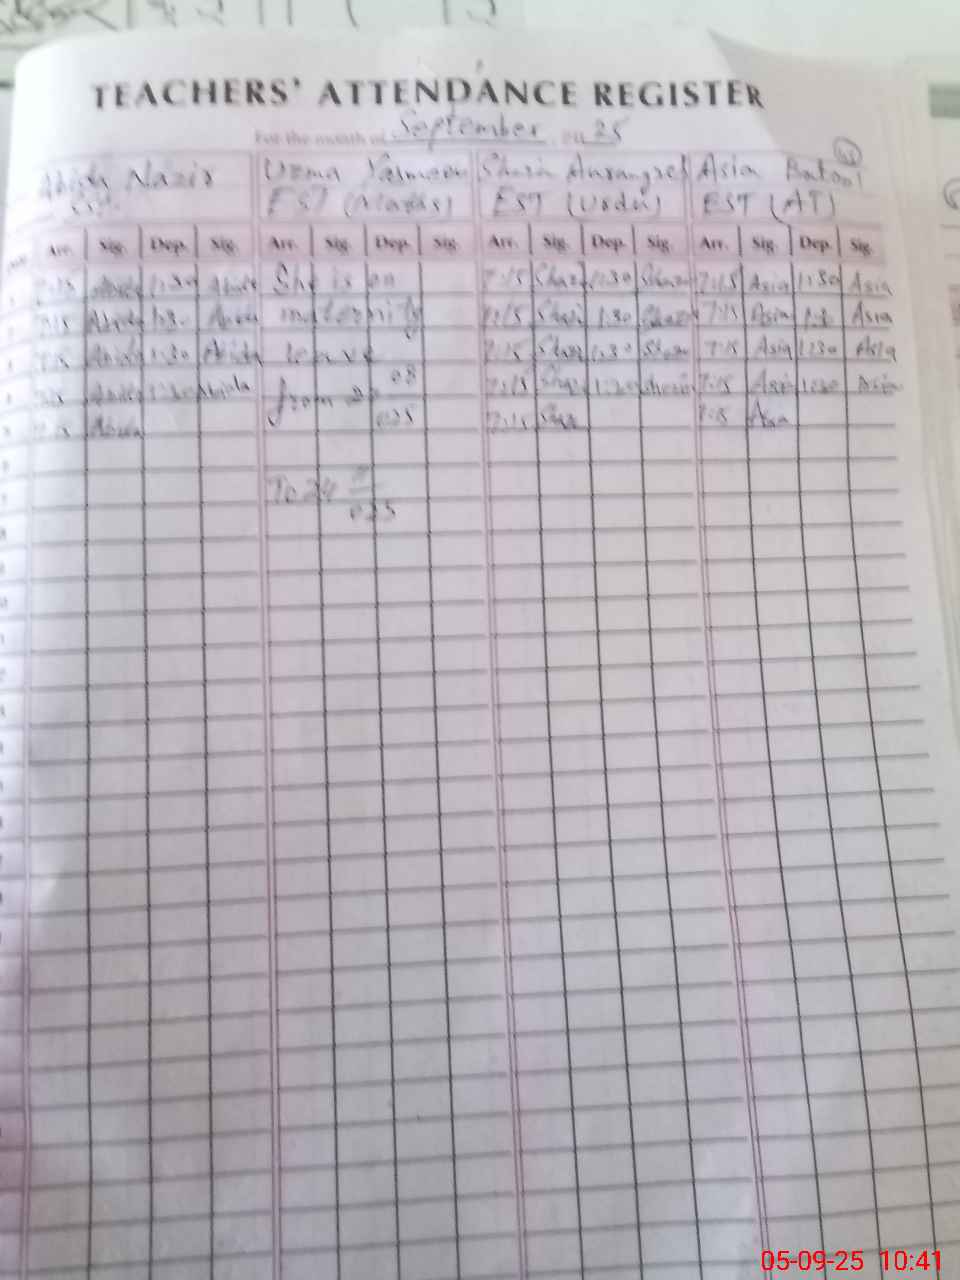 TEACHERS' ATTENDANCE REGISTER
For the month of September 2025
Abida Nazir Uzma Yasmeen Shazia Aurangzeb Asia Batool
EST (Maths) EST (Urdu) EST (AT)
Arr. Sig. Dep. Sig. Arr. Sig. Dep. Sig. Arr. Sig. Dep. Sig. Arr. Sig. Dep. Sig.
7:15 Abida 1:30 Abida She is on 7:15 Shaz 1:30 Shazi 7:15 Asia 1:30 Asia
7:15 Abida 1:30 Abida maternity 7:15 Shazi 1:30 7:15 Asia 1:30 Asia
7:15 Abida 1:30 Abida leave 7:15 Shaz 1:30 7:15 Asia 1:30 Asia
7:15 Abida 1:30 Abida from 08 7:15 Shaz 1:30 7:15 Asia 1:30 Asia
7:15 Abida 025 7:15 Shaz 7:15 Asia
To 24
025
05-09-25 10:41